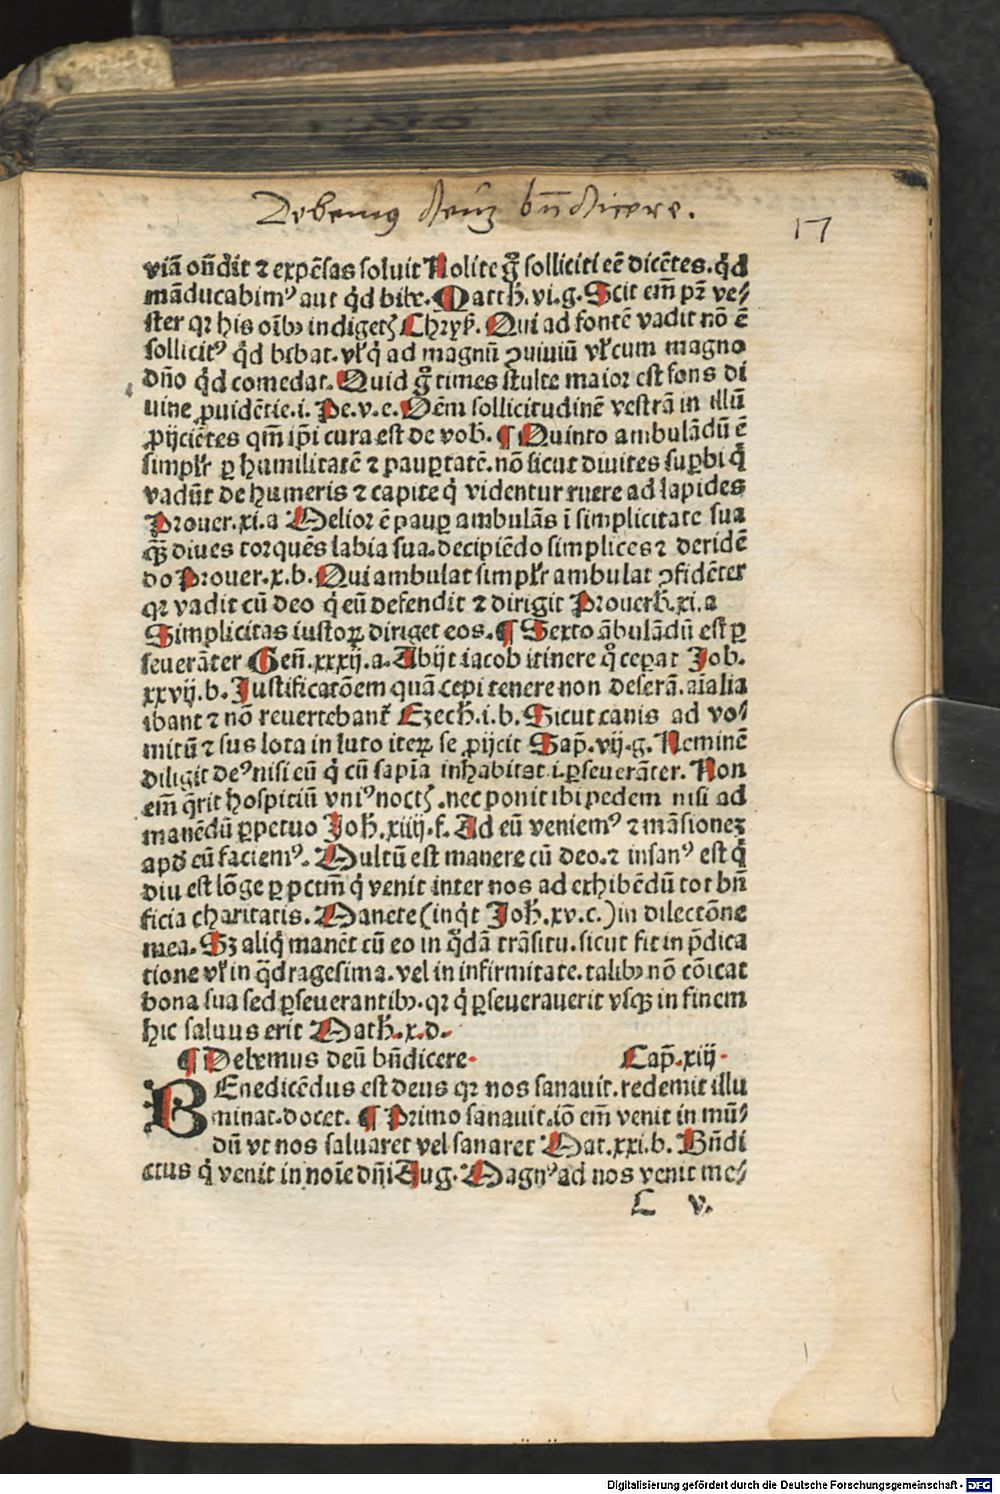 Debemus deū bn̄dicere.
17
viā on̄dit ⁊ expēsas soluit Nolite gͦ solliciti eē dicētes. qͥd
māducabimꝰ aut qͥd bibe. Matth. vi. g. Scit em̄ pr̄ ve⸗
ster qꝛ his oībꝫ indigetꝭ Chryß. Qui ad fontē vadit nō ē
sollicitꝰ qͥd bibat. vl̓ qͥ ad magnū ꝯuiuiū vl̓ cum magno
dn̄o qͥd comedat. Quid gͦ times stulte maioꝛ est fons di
uine ꝓuidētie. i. Pe. v. c. Oēm sollicitudinē vestrā in illū
ꝓijciētes qm̄ ip̄i cura est de vob. ¶ Quinto ambulādū ē
simplr̓ ꝑ humilitatē ⁊ pauꝑtatē. nō sicut diuites suꝑbi qͥ
vadūt de humeris ⁊ capite qͥ videntur ruere ad lapides
Prouer. xi. a Melior ē pauꝑ ambulās ī simplicitate sua
qꝫ̄ diues torquēs labia sua. decipiēdo simplices ⁊ deridē
do Prouer. x. b. Qui ambulat simplr̓ ambulat ꝯfidēter
qꝛ vadit cū deo qͥ eū defendit ⁊ dirigit Prouerb. xi. a
Simplicitas iustoꝝ diriget eos. ¶ Sexto ābulādū est ꝑ
seuerāter Gen̄. xxxij. a. Abijt iacob itinere qͦ ceꝑat Job.
xxvij. b. Justificatōem quā cepi tenere non deserā. aīalia
ibant ⁊ nō reuertebant̉ Ezech. i. b. Sicut canis ad vo⸗
mitū ⁊ sus lota in luto iteꝝ se ꝓijcit Sap̄. vij. g. Neminē
diligit deꝰ nisi eū qͥ cū sapīa inhabitat. i. ꝑseuerāter. Non
em̄ q̄rit hospitiū vniꝰ noctꝭ. nec ponit ibi pedem nisi ad
manēdū ꝑpetuo Joh. xiiij. f. Ad eū veniemꝰ ⁊ māsioneꝫ
apd̓ eū faciemꝰ. Multū est manere cū deo. ⁊ insanꝰ est qͥ
diu est lōge ꝑ pctm̄ qͥ venit inter nos ad exhibēdū tot bn̄
ficia charitatis. Manete (inqͥt Joh. xv. c.) in dilectōne
mea. Sꝫ aliqͥ manēt cū eo in qͦdā trāsitu. sicut fit in p̄dica
tione vl̓ in q̄dragesima. vel in infirmitate. talibꝫ nō cōicat
bona sua sed ꝑseuerantibꝫ. qꝛ qͥ ꝑseuerauerit vsqꝫ in finem
hic saluus erit Math. x. d.
¶ Debemus deū bn̄dicere. Cap̄. xiij.
BEnedicēdus est deus qꝛ nos sanauit. redemit illu
minat. docet. ¶ Primo sanauit. iō em̄ venit in mū⸗
dū vt nos saluaret vel sanaret Mat. xxi. b. Bn̄di
ctus qͥ venit in noīe dn̄i Aug. Magnꝰ ad nos venit me⸗
C v.
Digitalisierung gefördert durch die Deutsche Forschungsgemeinschaft - DFG